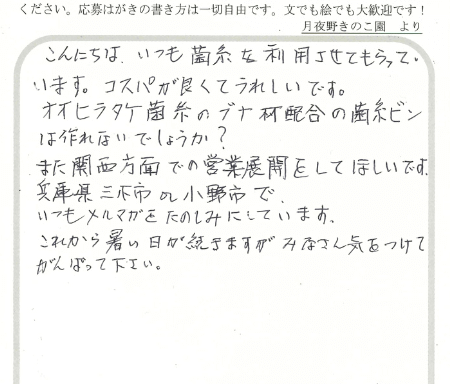 ください。応募はがきの書き方は一切自由です。文でも絵でも大歓迎です！
月夜野きのこ園　より
こんにちは、いつも菌糸を利用させてもらって
います。コスパが良くてうれしいです。
オオヒラタケ菌糸のブナ材配合の菌糸ビン
は作れないでしょうか？
また関西方面での営業展開をしてほしいです。
兵庫県三木市or小野市で、
いつもメルマガをたのしみにしています。
これから暑い日が続きますがみなさん気をつけて
がんばって下さい。